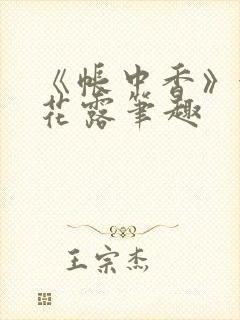 《帐中香》
花露笔趣
王宗杰